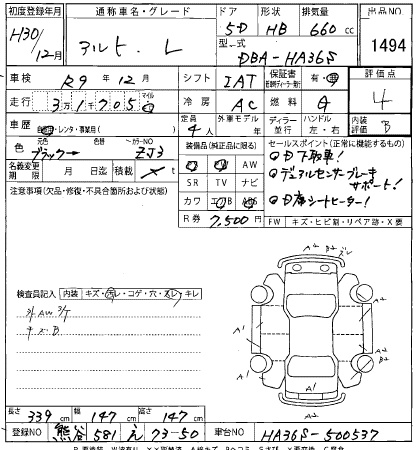 初度登録年月 通称車名・グレード ドア 形状 排気量 出品NO
H30/12月 アルト. L 5D HB 660 cc 1494
型式 DBA-HA36S
車検 R9年12月 シフト IAT 保証書 有・無 評価点 4
走行 3万1千705 マイル 冷房 AC 燃料 G 内装評価 B
車歴 自家用・レンタ・事業用( ) 定員 4人 外車モデル年 ディーラー 並行 ハンドル 左・右
色 元色 ブラック 色替 カラーNO ZJ3
装備品(純正品に限る) セールスポイント(正常に機能するもの)
SR TV ナビ AW
カワ エアB ABS
名義変更期限 月 日 積載 t
R券 7,500円
①下取車!
②デュアルセンサーブレーキサポート!
③席シートヒーター!
注意事項(欠品・修復・不具合箇所および状態)
FW キズ・ヒビ割・リペア跡・X要
検査員記入 内装 キズ・汚レ・コゲ・穴・スレ・キレ
外AW 3/T
キズ B
A2 B2 ズレ
A2
A1 A2
B2
A1 A1
A2
長さ 339cm 幅 147cm 高さ 147cm
登録NO 熊谷 581 え 73-50 車台NO HA36S-500537